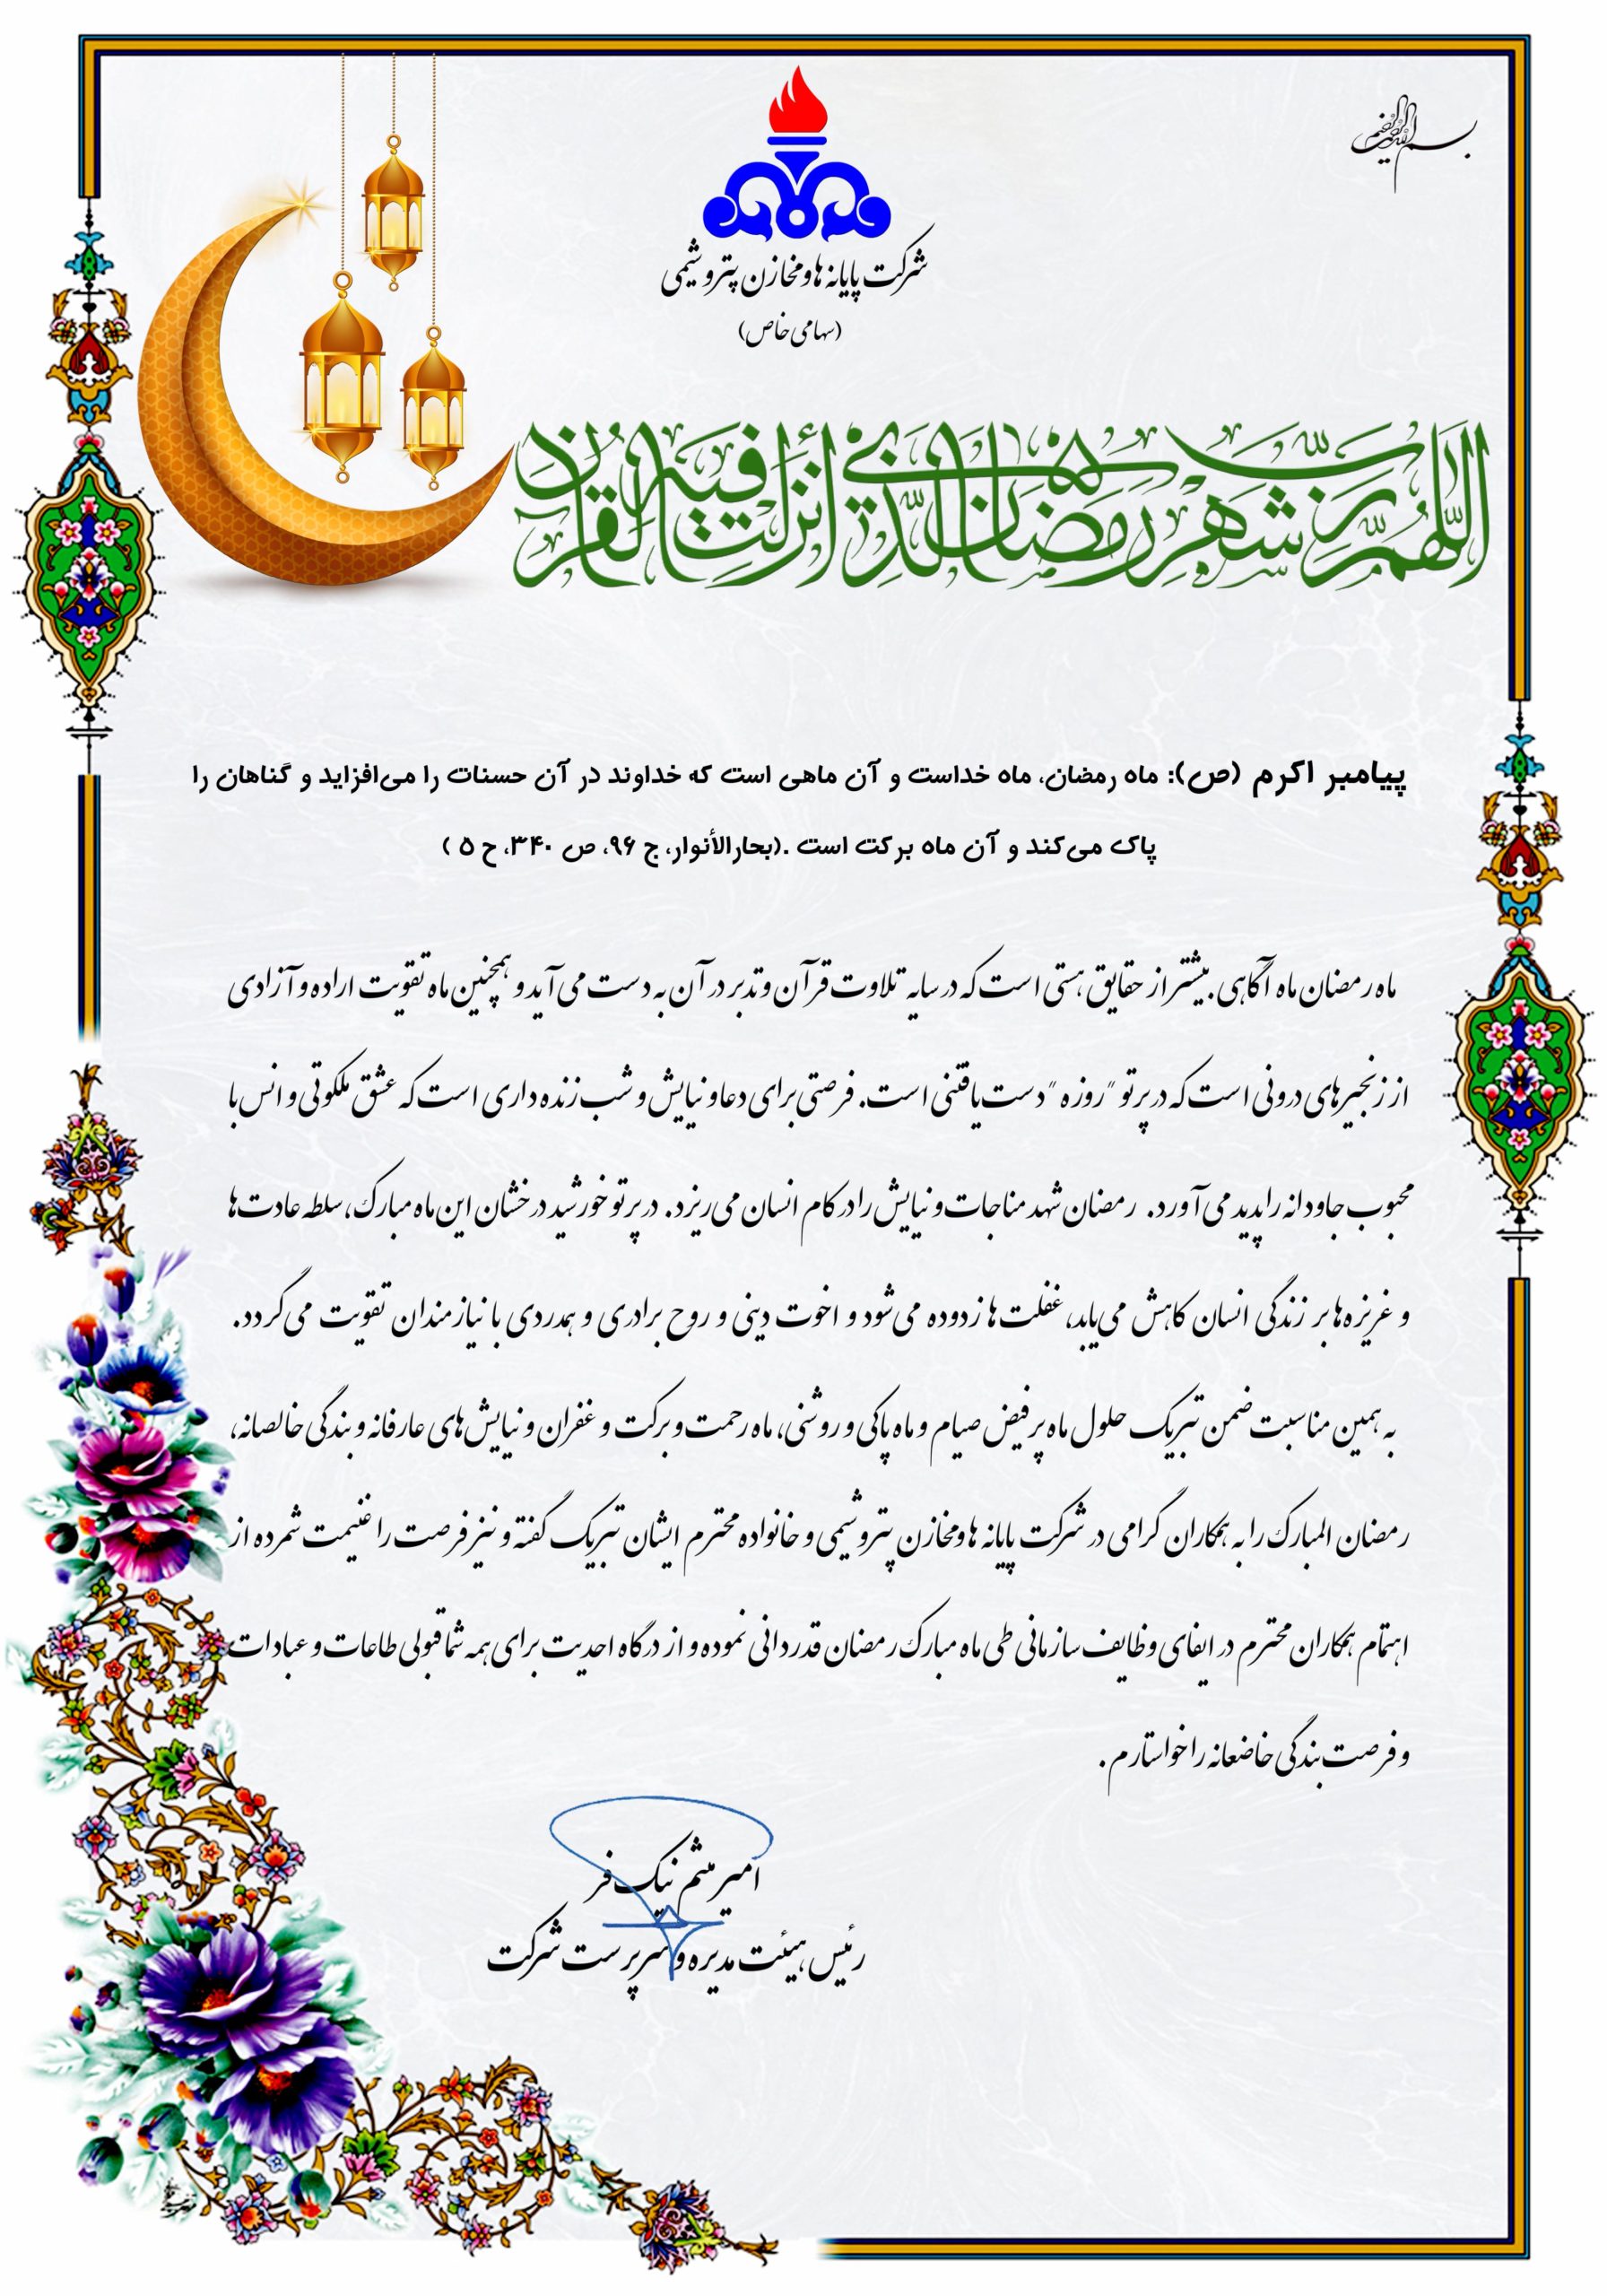 بسم الله الرحمن الرحیم
شرکت پایانه ها و مخازن پتروشیمی
(سهامی خاص)
اللهم رب شهر رمضان الذی أنزلت فیه القرآن
پیامبر اکرم (ص): ماه رمضان، ماه خداست و آن ماهی است که خداوند در آن حسنات را می‌افزاید و گناهان را
پاک می‌کند و آن ماه برکت است .(بحارالأنوار، ج ۹۶، ص ۳۴۰، ح ۵ )
ماه رمضان ماه آگاهی . بیشتر از حقایق هستی است که در سایه تلاوت قرآن و تدبر در آن به دست می آید و همچنین ماه تقویت اراده و آزادی
از زنجیرهای درونی است که در پرتو "روزه" دست یافتنی است. فرصتی برای دعا و نیایش و شب زنده داری است که عشق ملکوتی و انس با
محبوب جاودانه را پدید می آورد. رمضان شهد مناجات و نیایش را در کام انسان می‌ریزد. در پرتو خورشید درخشان این ماه مبارک، سلطه عادت‌ها
و غریزه ها بر زندگی انسان کاهش می‌یابد، غفلت ها زدوده می‌شود و اخوت دینی و روح برادری و همدردی با نیازمندان تقویت می‌گردد.
به همین مناسبت ضمن تبریک حلول ماه پرفیض صیام و ماه پاکی و روشنی، ماه رحمت و برکت و غفران و نیایش‌های عارفانه و بندگی خالصانه،
رمضان المبارک را به همکاران گرامی در شرکت پایانه ها و مخازن پتروشیمی و خانواده محترم ایشان تبریک گفته و نیز فرصت را غنیمت شمرده از
اهتمام همکاران محترم در ایفای وظایف سازمانی طی ماه مبارک رمضان قدردانی نموده و از درگاه احدیت برای همه شما قبولی طاعات و عبادات
و فرصت بندگی خاضعانه را خواستارم .
امیر میثم نیک فر
رئیس هیئت مدیره و سرپرست شرکت